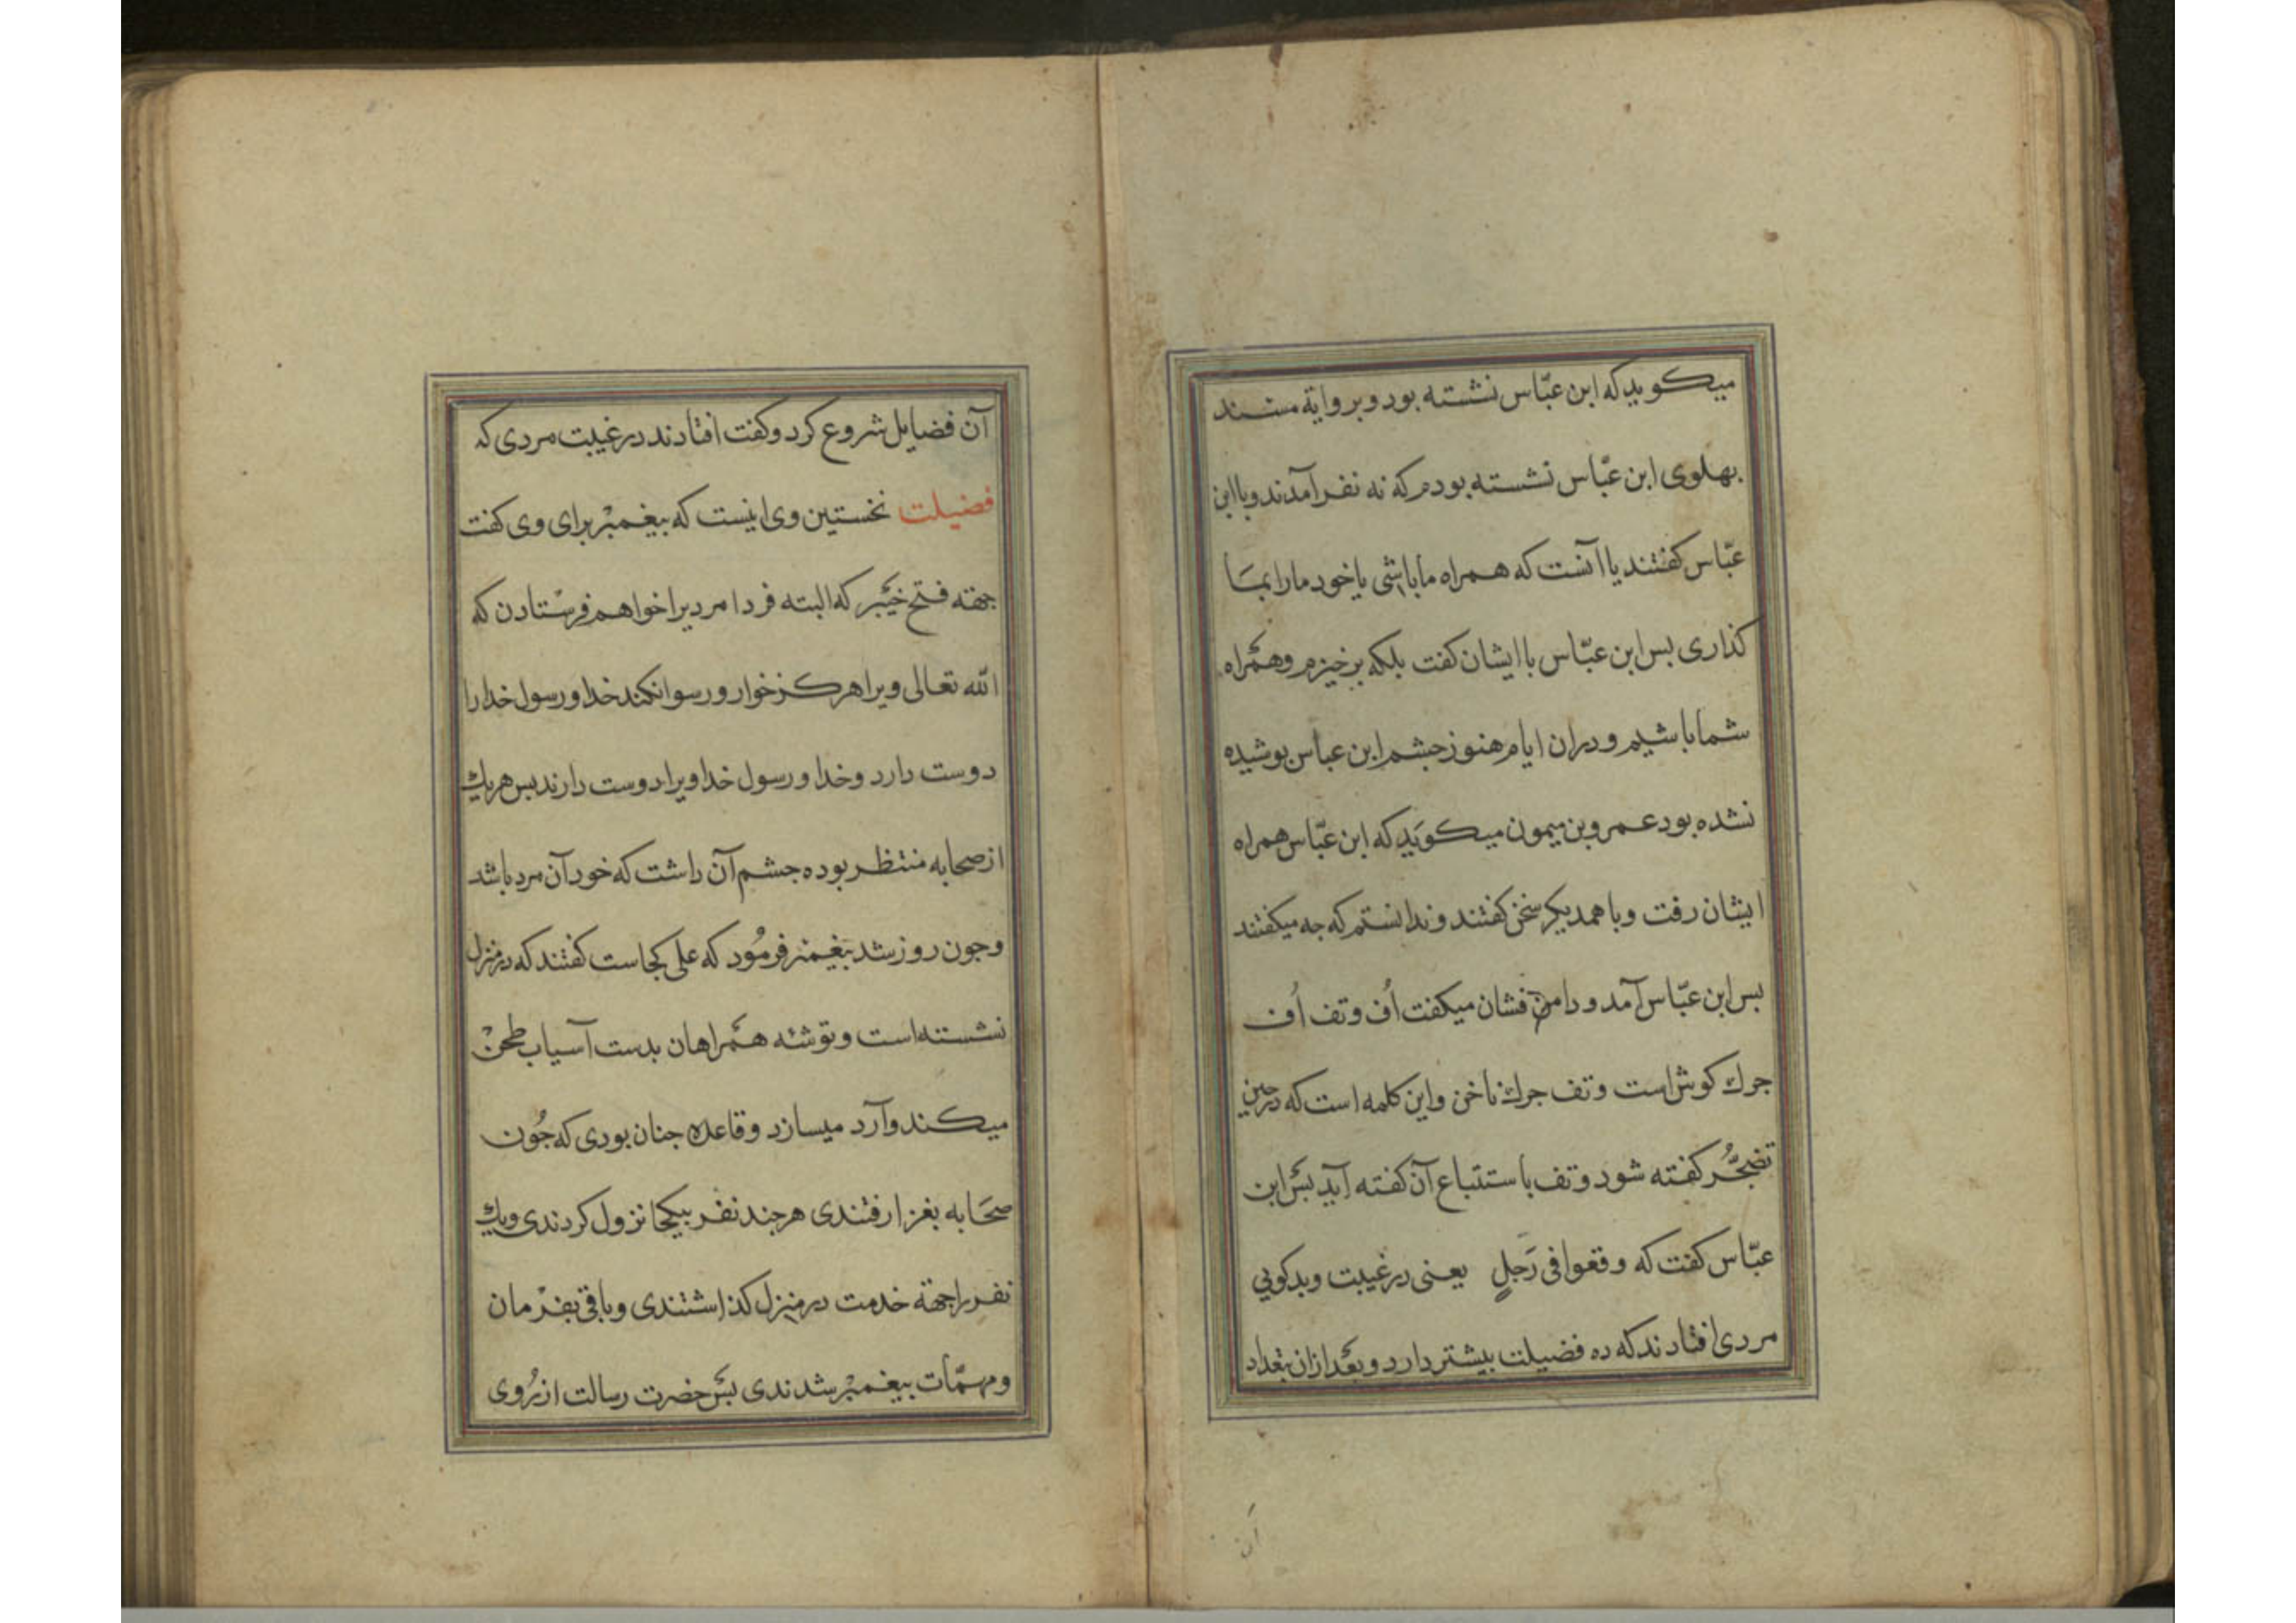 میکوید که ابن عبّاس نشسته بود و بروایة مسند
بهلوی ابن عبّاس نشسته بودم که نه نفر آمدند و با ابن
عبّاس کفتند یا آنست که همراه ما باشی یا خود ما را بما
کذاری بس ابن عبّاس با ایشان کفت بلکه برخیزم و همراه
شما باشیم و دران ایام هنوز جشم ابن عباس بوشیده
نشده بود عمرو بن میمون میکوید که ابن عبّاس همراه
ایشان رفت و با همدیکر سخن کفتند و ندانستم که جه میکفتند
بس ابن عبّاس آمد و دامن فشان میکفت اُف و تف اُف
جرك کوش است و تف جرك ناخن و این کلمه است که در حین
تضجُّر کفته شود و تف باستتباع آن کفته آید بس ابن
عبّاس کفت که وقعوا فی رَجلٍ یعنی در غیبت و بدکویی
مردی افتادند که ده فضیلت بیشتر دارد و بعد ازان بتعداد
آن
آن فضایل شروع کرد و کفت افتادند در غیبت مردی که
فضیلت نخستین وی اینست که بیغمبر برای وی کفت
جهته فتح خیبر که البته فردا مردیرا خواهم فرستادن که
الله تعالی ویرا هرکز خوار و رسوا نکند خدا و رسول خدا را
دوست دارد و خدا و رسول خدا ویرا دوست دارند بس هر یك
از صحابه منتظر بوده جشم آن داشت که خود آن مرد باشد
و جون روز شد بیغمبر فرمُود که علی کجاست کفتند که در منزل
نشسته است و توشه همراهان بدست آسیاب طحن
میکند و آرد میسازد و قاعده جنان بودی که جُون
صحَابه بغزا رفتندی هر جند نفر بیکجا نزول کردندی و یك
نفر را جهة خدمت در منزل کذاشتندی و باقی بفرمان
و مهمّات بیغمبر شدندی بس حضرت رسالت از رُوی